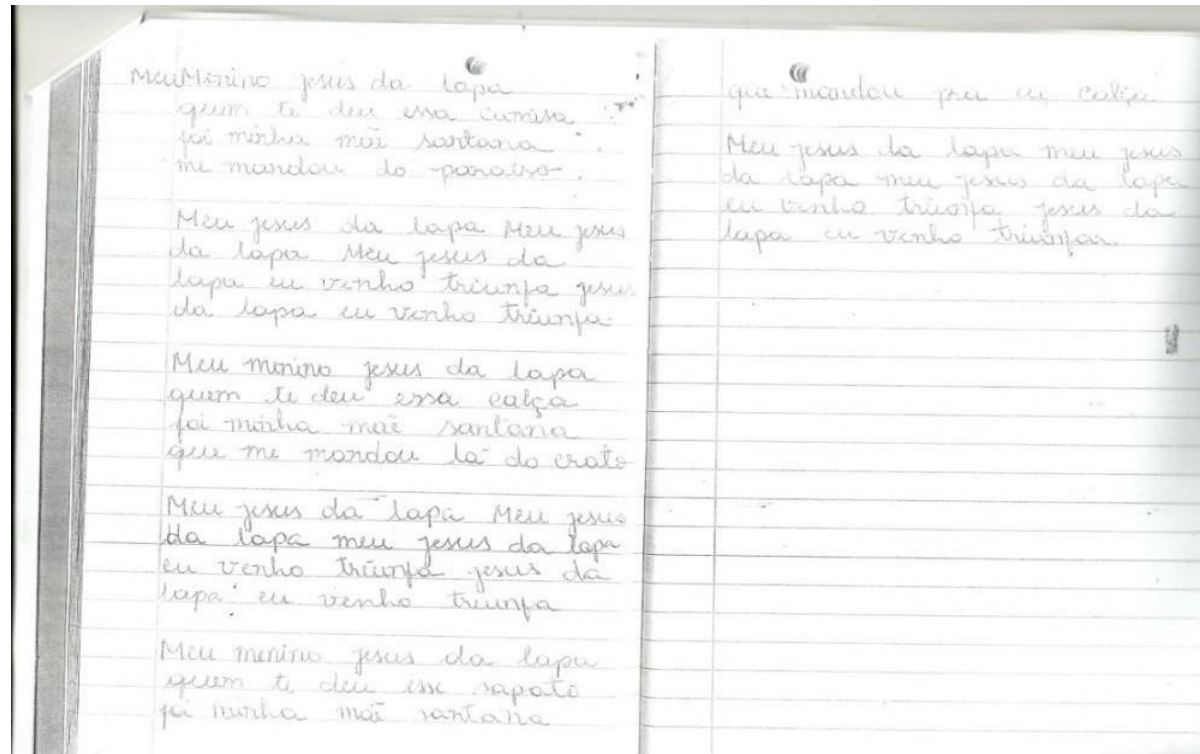 Meu Menino jesus da lapa
quem te deu essa camisa
foi minha mãe santana
me mandou do paraiso.
Meu jesus da lapa Meu jesus
da lapa Meu jesus da
lapa eu venho triunfa jesus
da lapa eu venho triunfa.
Meu menino jesus da lapa
quem te deu essa calça
foi minha mãe santana
que me mandou la do crato
Meu jesus da lapa Meu jesus
da lapa meu jesus da lapa
eu venho triunfa jesus da
lapa eu venho triunfa
Meu menino jesus da lapa
quem te deu esse sapato
foi minha mãe santana
que mandou pra eu calça
Meu jesus da lapa meu jesus
da lapa meu jesus da lapa
eu venho triunfa jesus da
lapa eu venho triunfar.